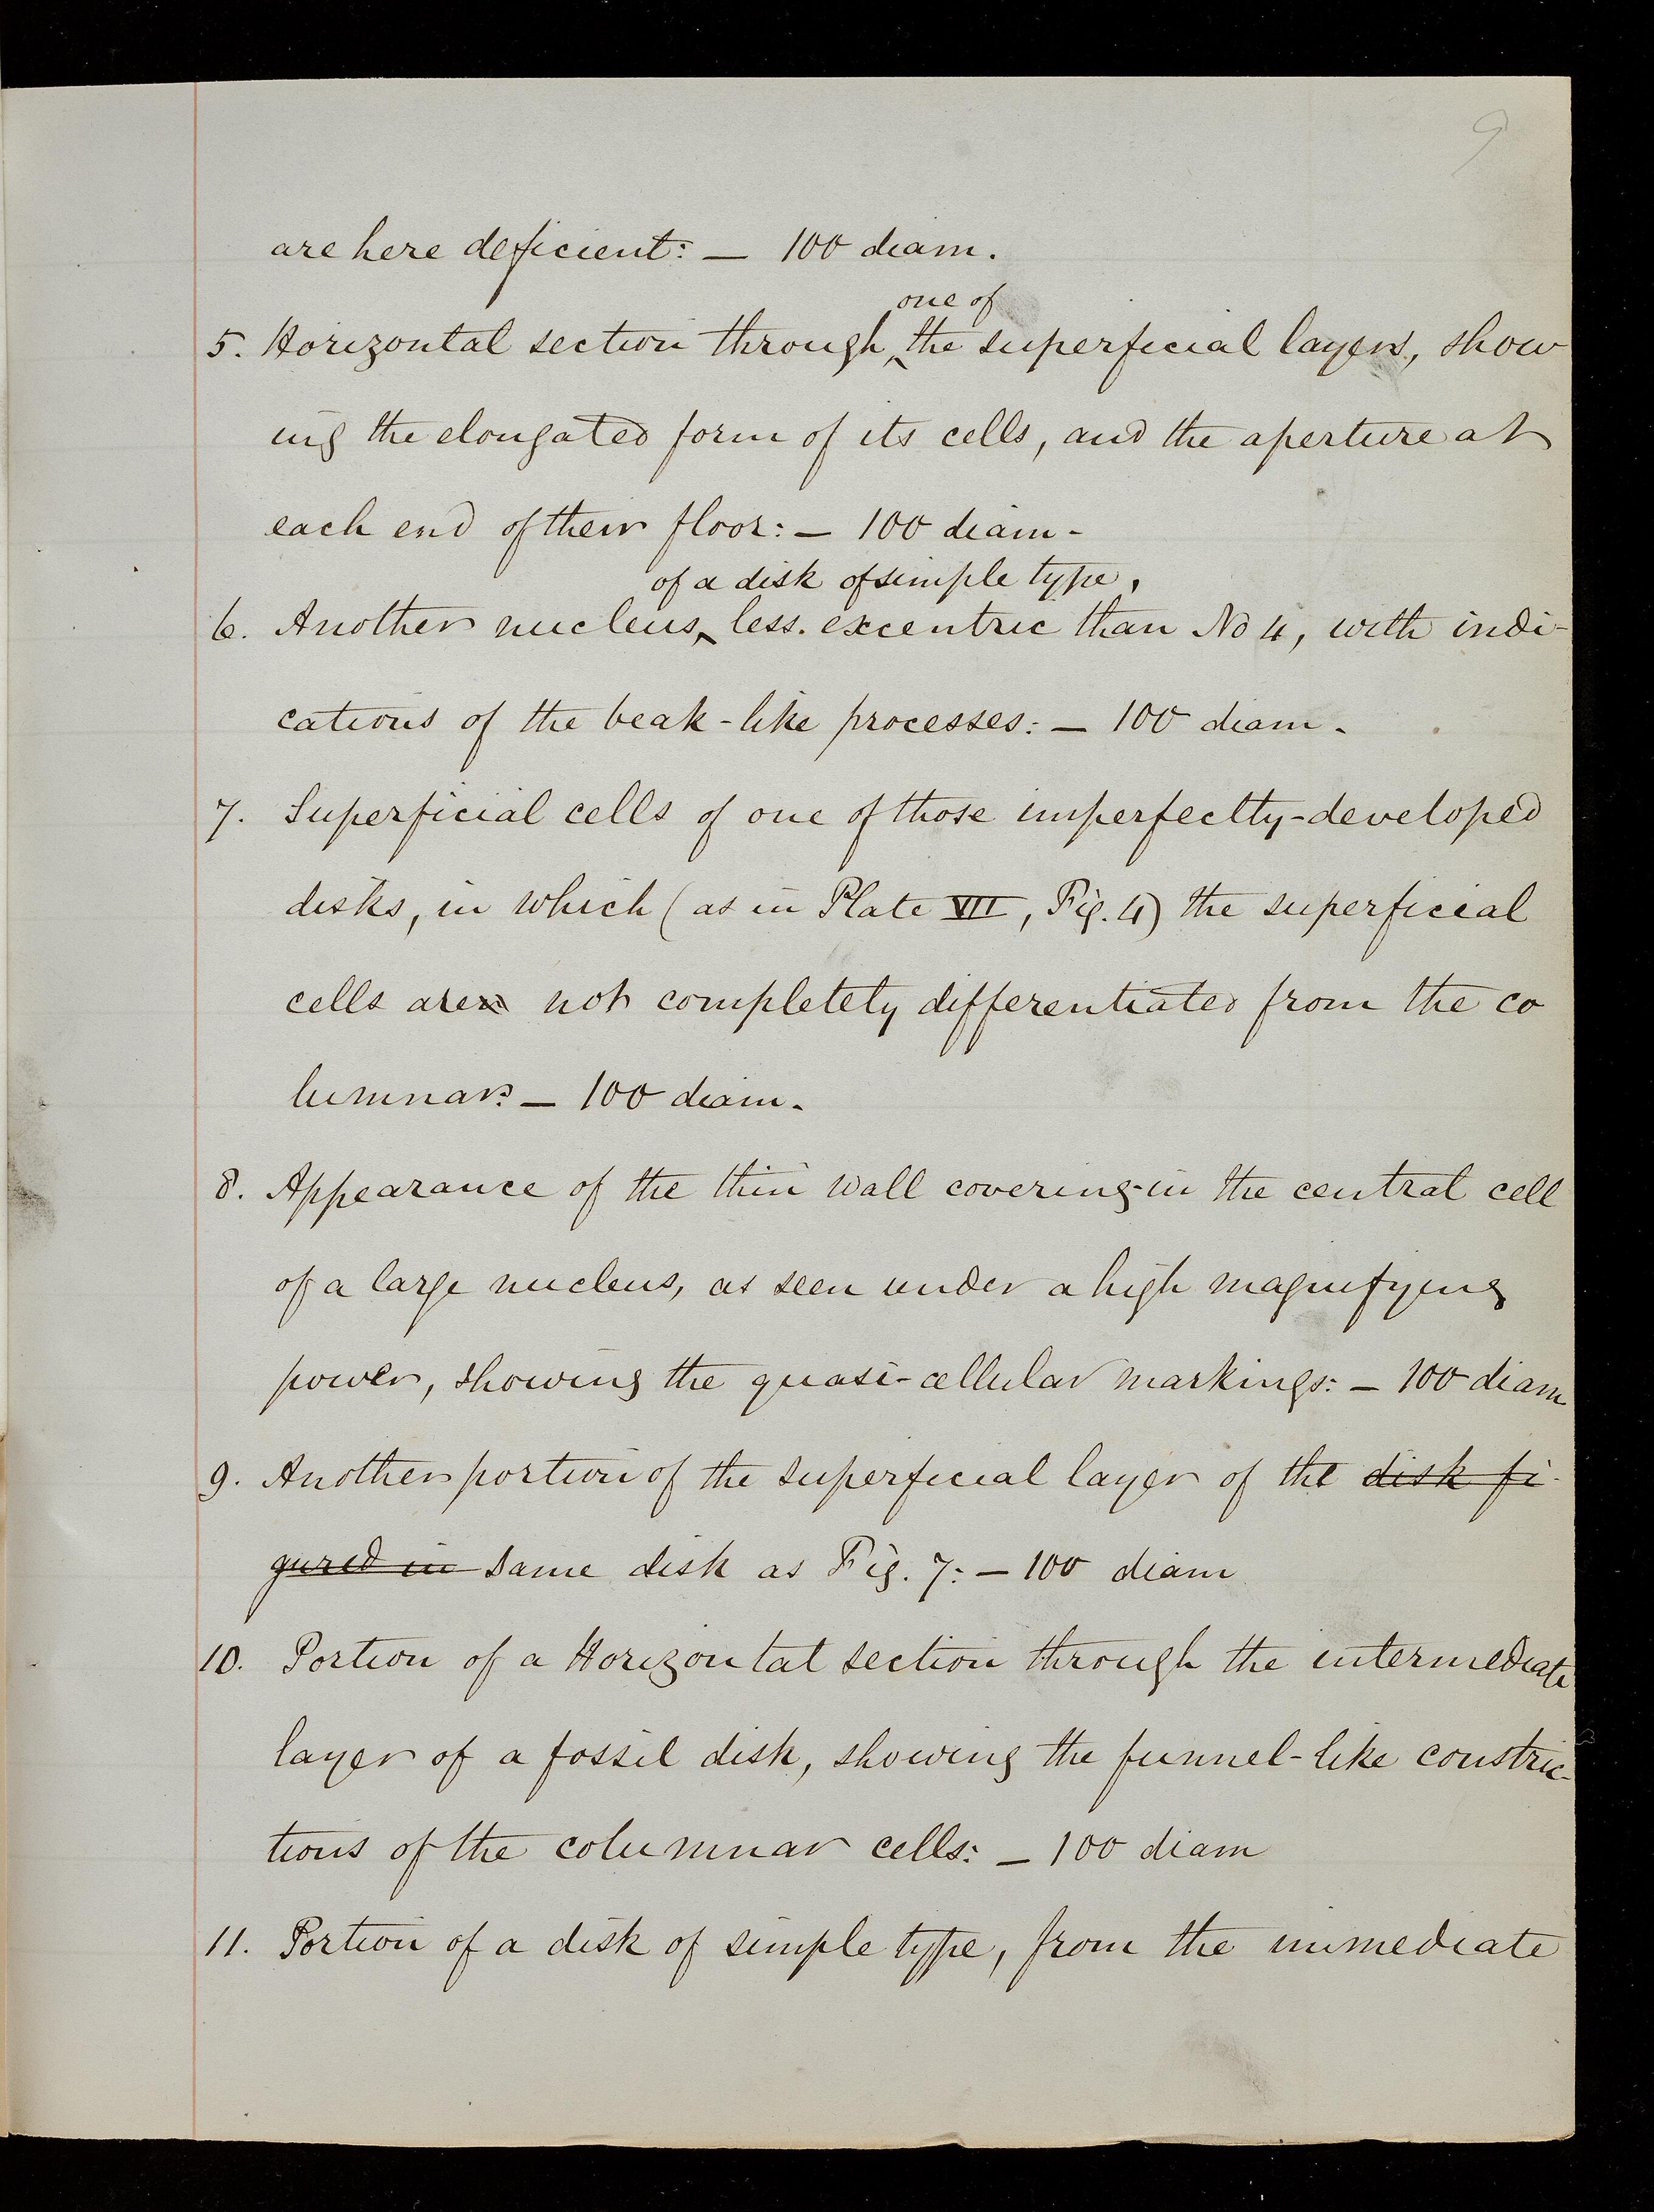 9
are here deficient: — 100 diam.
one of
5. Horizontal section through ‸ the superficial layers, show
ing the elongated form of its cells, and the aperture at
each end of their floor: — 100 diam.
of a disk of simple type,
6. Another nucleus, ‸ less excentric than No 4, with indi-
cations of the beak-like processes: — 100 diam.
7. Superficial cells of one of those imperfectly-developed
disks, in which (as in Plate VII, Fig. 4) the superficial
cells are not completely differentiated from the co
lumnar: — 100 diam.
8. Appearance of the thin wall covering-in the central cell
of a large nucleus, as seen under a high magnifying
power, showing the quasi-cellular markings: — 100 diam
9. Another portion of the superficial layer of the disk fi-
gured in same disk as Fig. 7: — 100 diam
10. Portion of a Horizontal section through the intermediate
layer of a fossil disk, showing the funnel-like constric-
tions of the columnar cells: — 100 diam
11. Portion of a disk of simple type, from the immediate